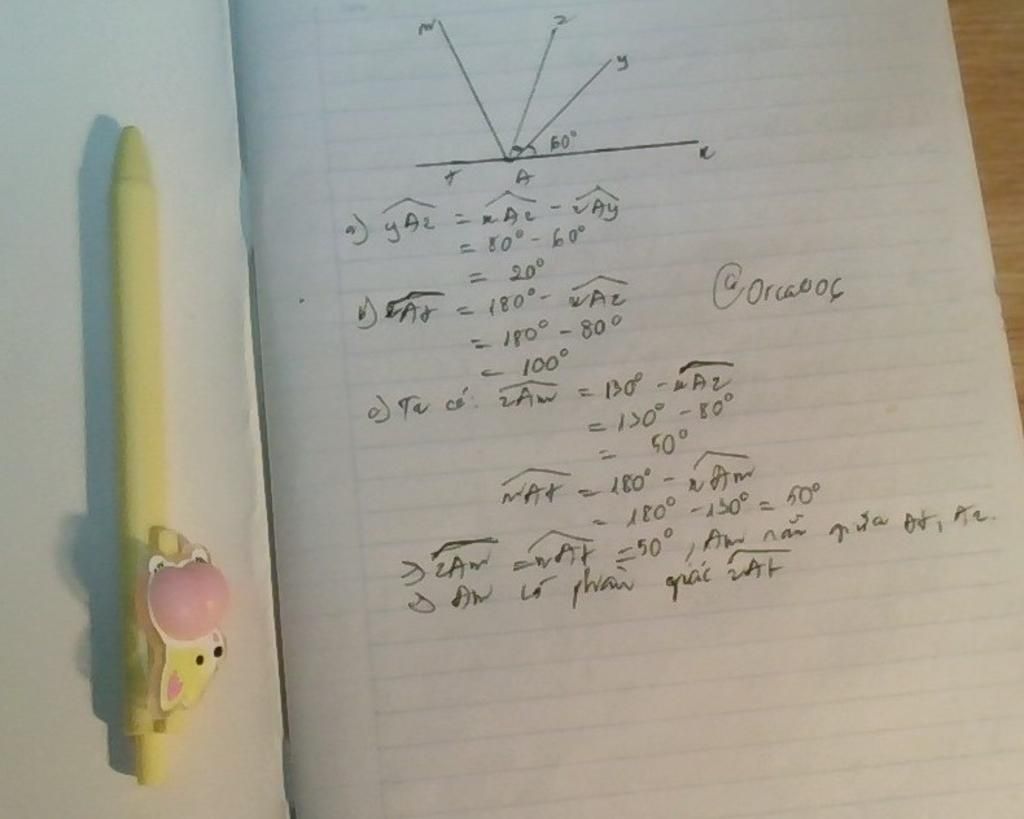 m z y
60°
t A x
a) yAz = xAz - xAy
= 80° - 60°
= 20°
b) zAt = 180° - xAz
= 180° - 80°
= 100°
@Orcaooç
c) Ta có: zAm = 130° - xAz
= 130° - 80°
= 50°
mAt = 180° - xAm
= 180° - 130° = 50°
=> zAm = mAt = 50°, Am nằm giữa At, Az.
=> Am có phân giác zAt